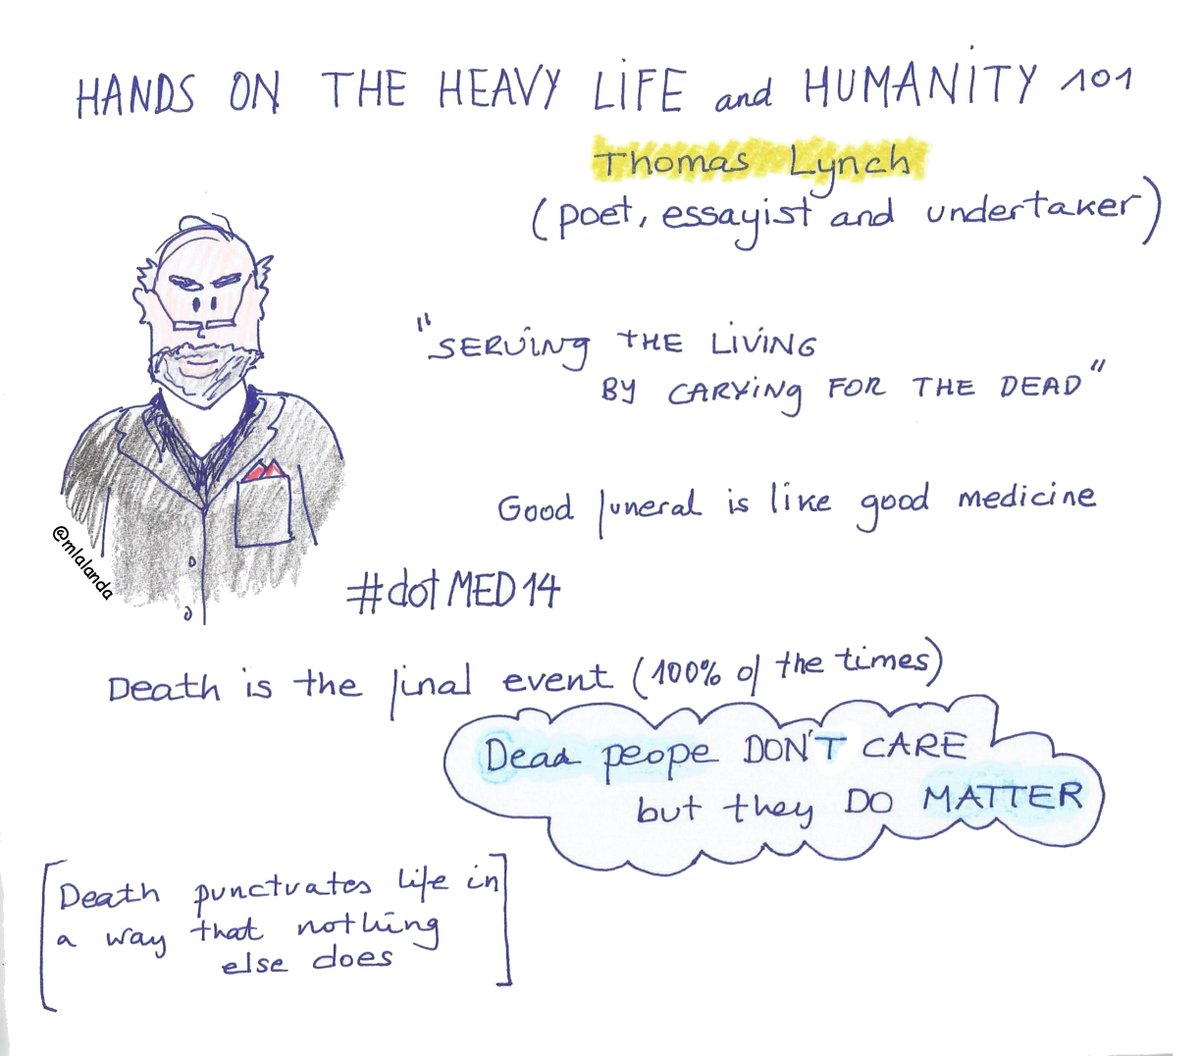 HANDS ON THE HEAVY LiFE and HUMANiTY 101
Thomas Lynch
(poet, essayist and undertaker)
"SERViNg THE LiViNG
BY CARYiNg FOR THE DEAD"
Good funeral is like good medicine
@mlalanda
#dotMED14
Death is the final event (100% of the times)
Dead peope DON'T CARE
but they DO MATTER
[Death punctuates life in
a way that nothing
else does]